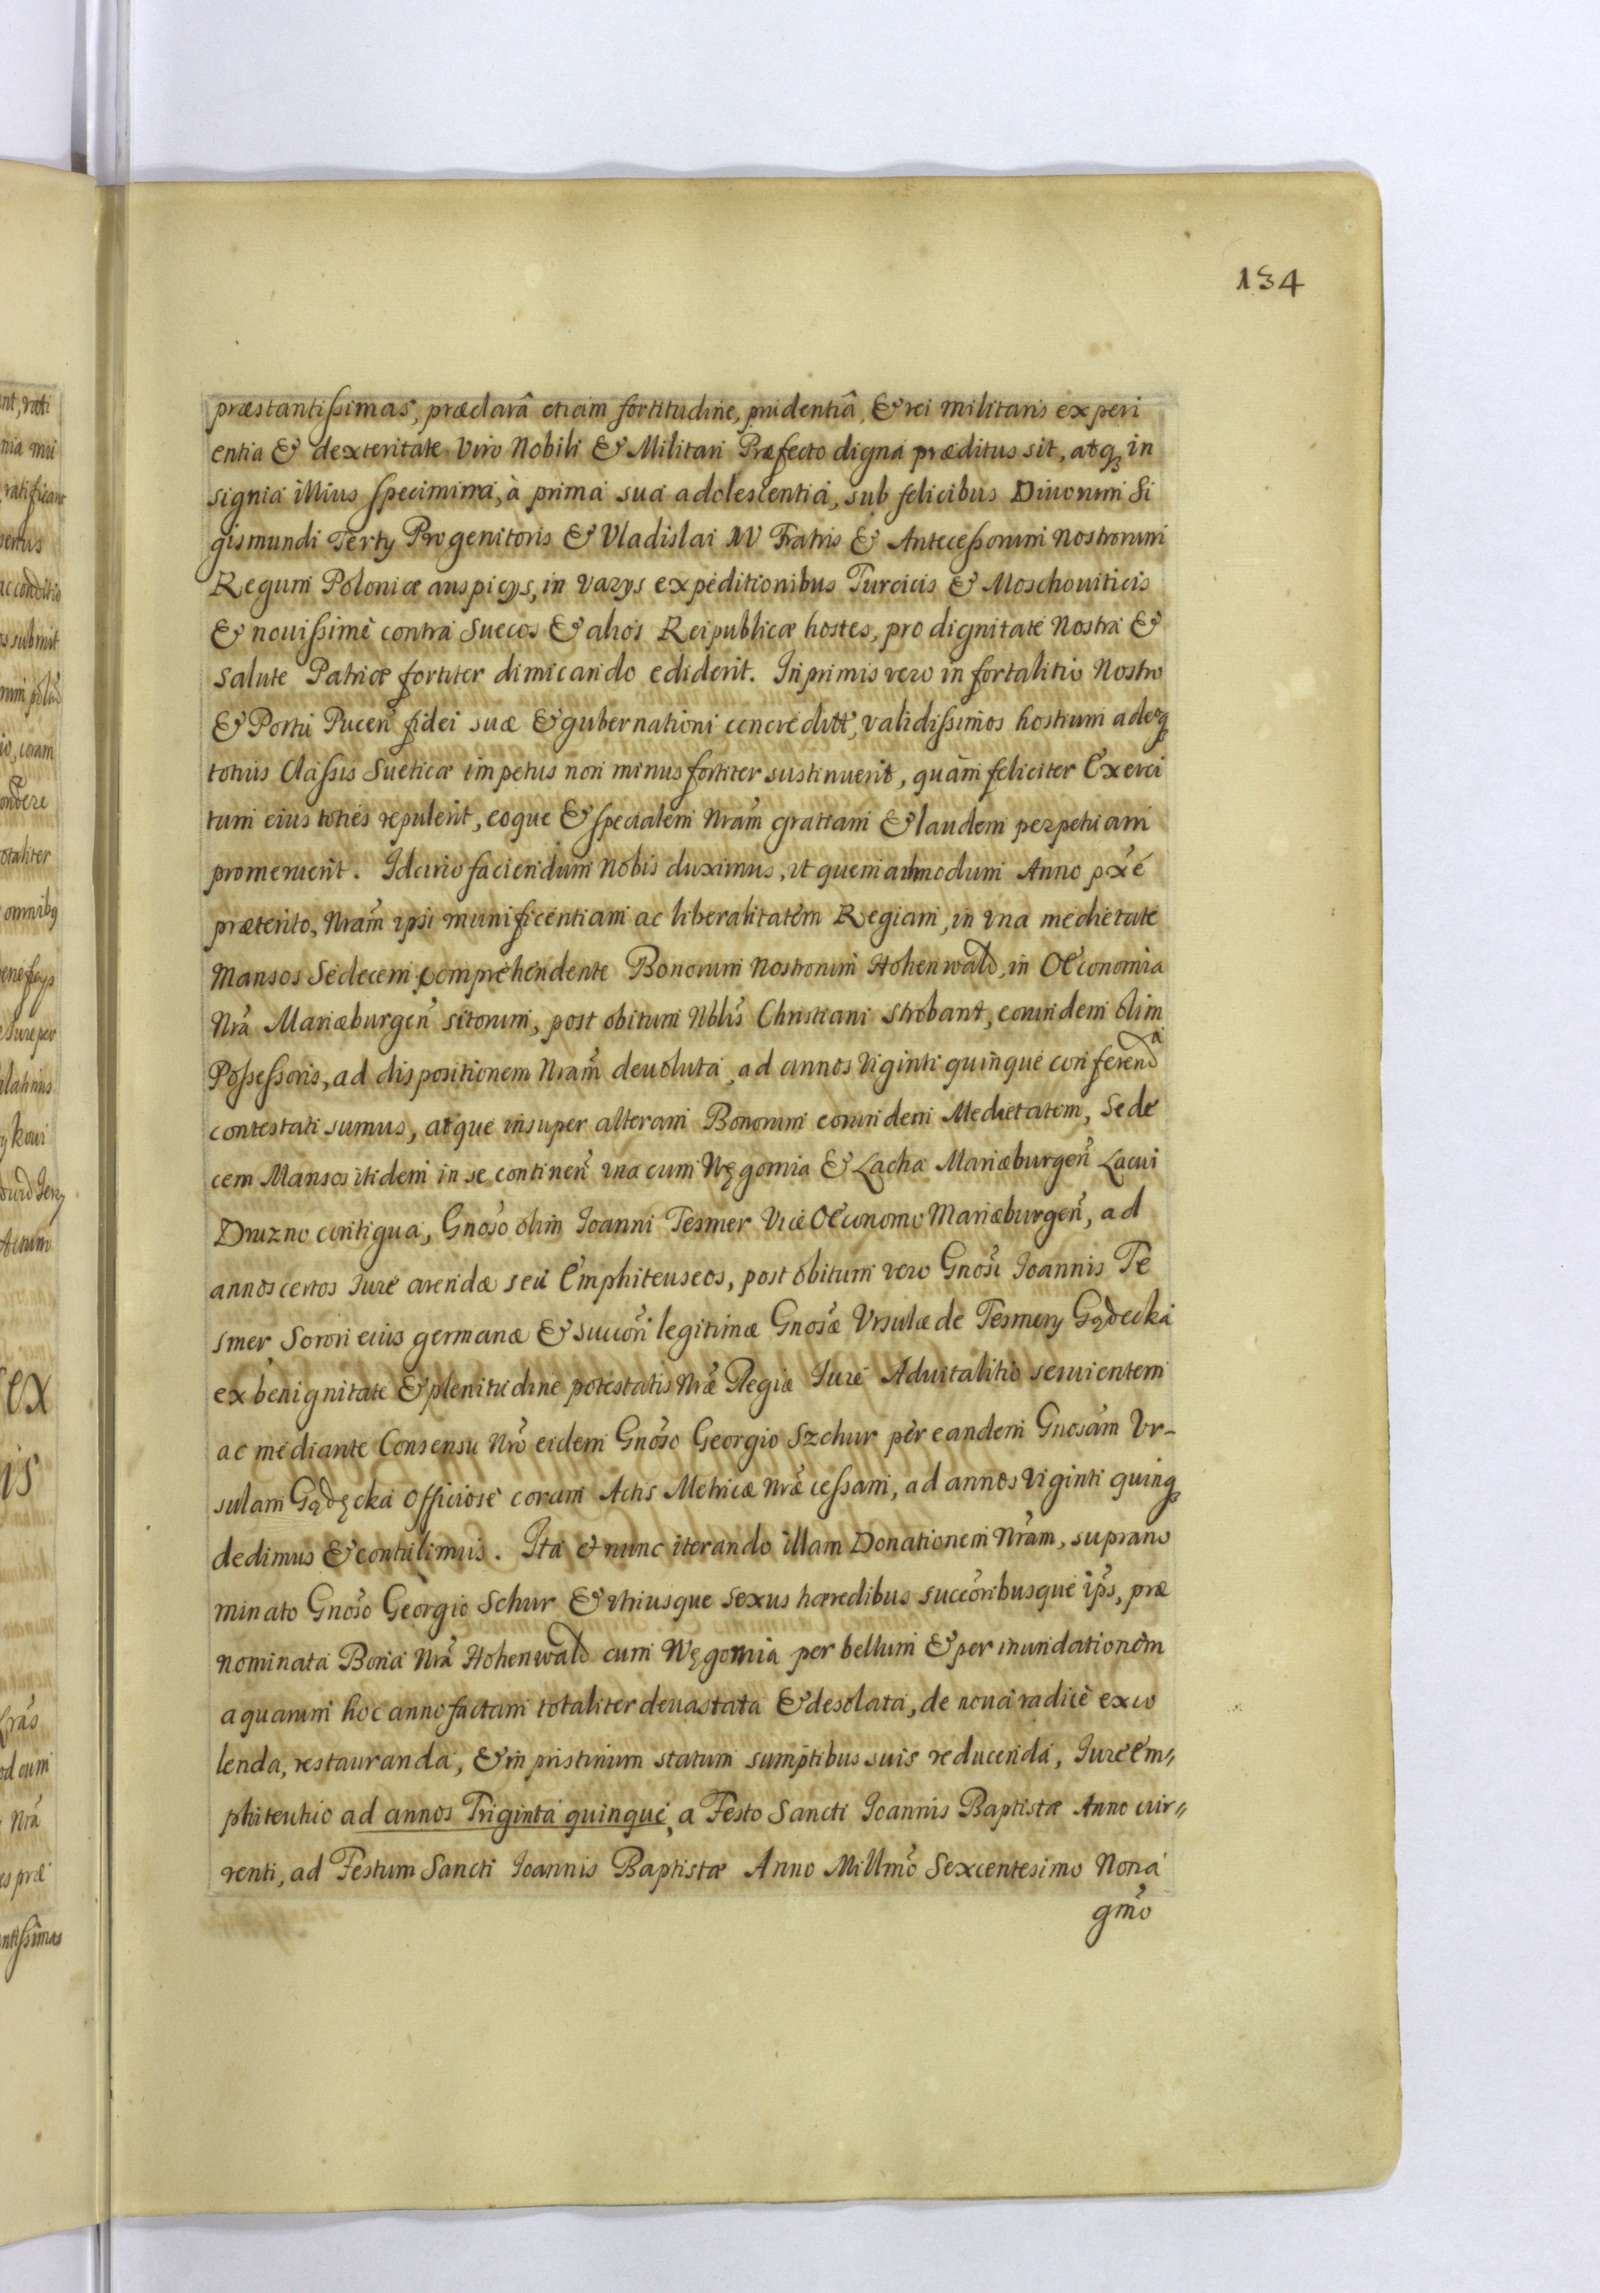 134
præstantissimas, præclarâ etiam fortitudine, prudentiâ, & rei militaris experi
entia & dexteritate Viro Nobili & Militari Præfecto digna præditus sit, atq, in
signia illius specimina, à prima sua adolescentia, sub felicibus Divorum Si
gismundi Tertÿ Progenitoris & Vladislai IV Fratris & Antecessorum Nostrorum
Regum Poloniæ auspicÿs, in varÿs expeditionibus Turcicis & Moschoviticis
& novissimè contra Suecos & alios Reipublicæ hostes, pro dignitate Nostra &
salute Patriæ fortiter dimicando ediderit. Inprimis vero in fortalitio Nostro
& Portu Pucen̄ fidei suæ & gubernationi concredit̄, validissimos hostium adeoq
totius Classis Sueticæ impetus non minus fortiter sustinuerit, quàm feliciter Exerci
tum eius toties repulerit, eoque & specialem Nram̄ gratiam & laudem perpetuam
promeruerit. Idcirco faciendum Nobis duximus, ut quemadmodum Anno px̄é
præterito, Nram̄ ipsi munificentiam ac liberalitatem Regiam, in una medietate
Mansos Sedecem comprehendente Bonorum Nostrorum Hohenwald, in Oeconomia
Nrā Mariæburgen̄ sitorum, post obitum Nblīs Christiani Strobant, eorundem olim
Possessoris, ad dispositionem Nram̄ devoluta, ad annos Viginti quinque conferenda
contestati sumus, atque insuper alteram Bonorum eorundem Medietatem, Sede
cem Mansos itidem in se continen̄ una cum Węgornia & Lacha Mariæburgen̄ Lacui
Druzno contigua, Gnoso olim Ioanni Tesmer Vice Oeconomo Mariæburgen̄, ad
annos certos Iure arendæ seu Emphiteuseos, post obitum vero Gnosi Ioannis Te
smer Sorori eius germanæ & succōri legitimæ Gnosæ Vrsulæ de Tesmery Gądecka
ex benignitate & plenitudine potestatis Nrǣ Regiæ Iure Advitalitio servientem
ac mediante Consensu Nrō eidem Gnoso Georgio Szchur per eandem Gnosam Vr-
sulam Gądęcka officiose coram Actis Metricæ Nrǣ cessam, ad annos Viginti quinq
dedimus & contulimus. Ita et nunc iterando illam Donationem Nram̄, suprano
minato Gnoso Georgio Schur & utriusque sexus hæredibus succōribusque ips̄, præ
nominata Bona Nrā Hohenwald cum Węgornia per bellum & per inundationem
aquarum hoc anno factam totaliter devastata & desolata, de nova radice exco
lenda, restauranda, & in pristinum statum sumptibus suis reducenda, Iure Em=
phiteutico ad annos Triginta quinque, a Festo Sancti Ioannis Baptistæ Anno cur=
renti, ad Festum Sancti Ioannis Baptistæ Anno Millmō Sexcentesimo Nona
gmō